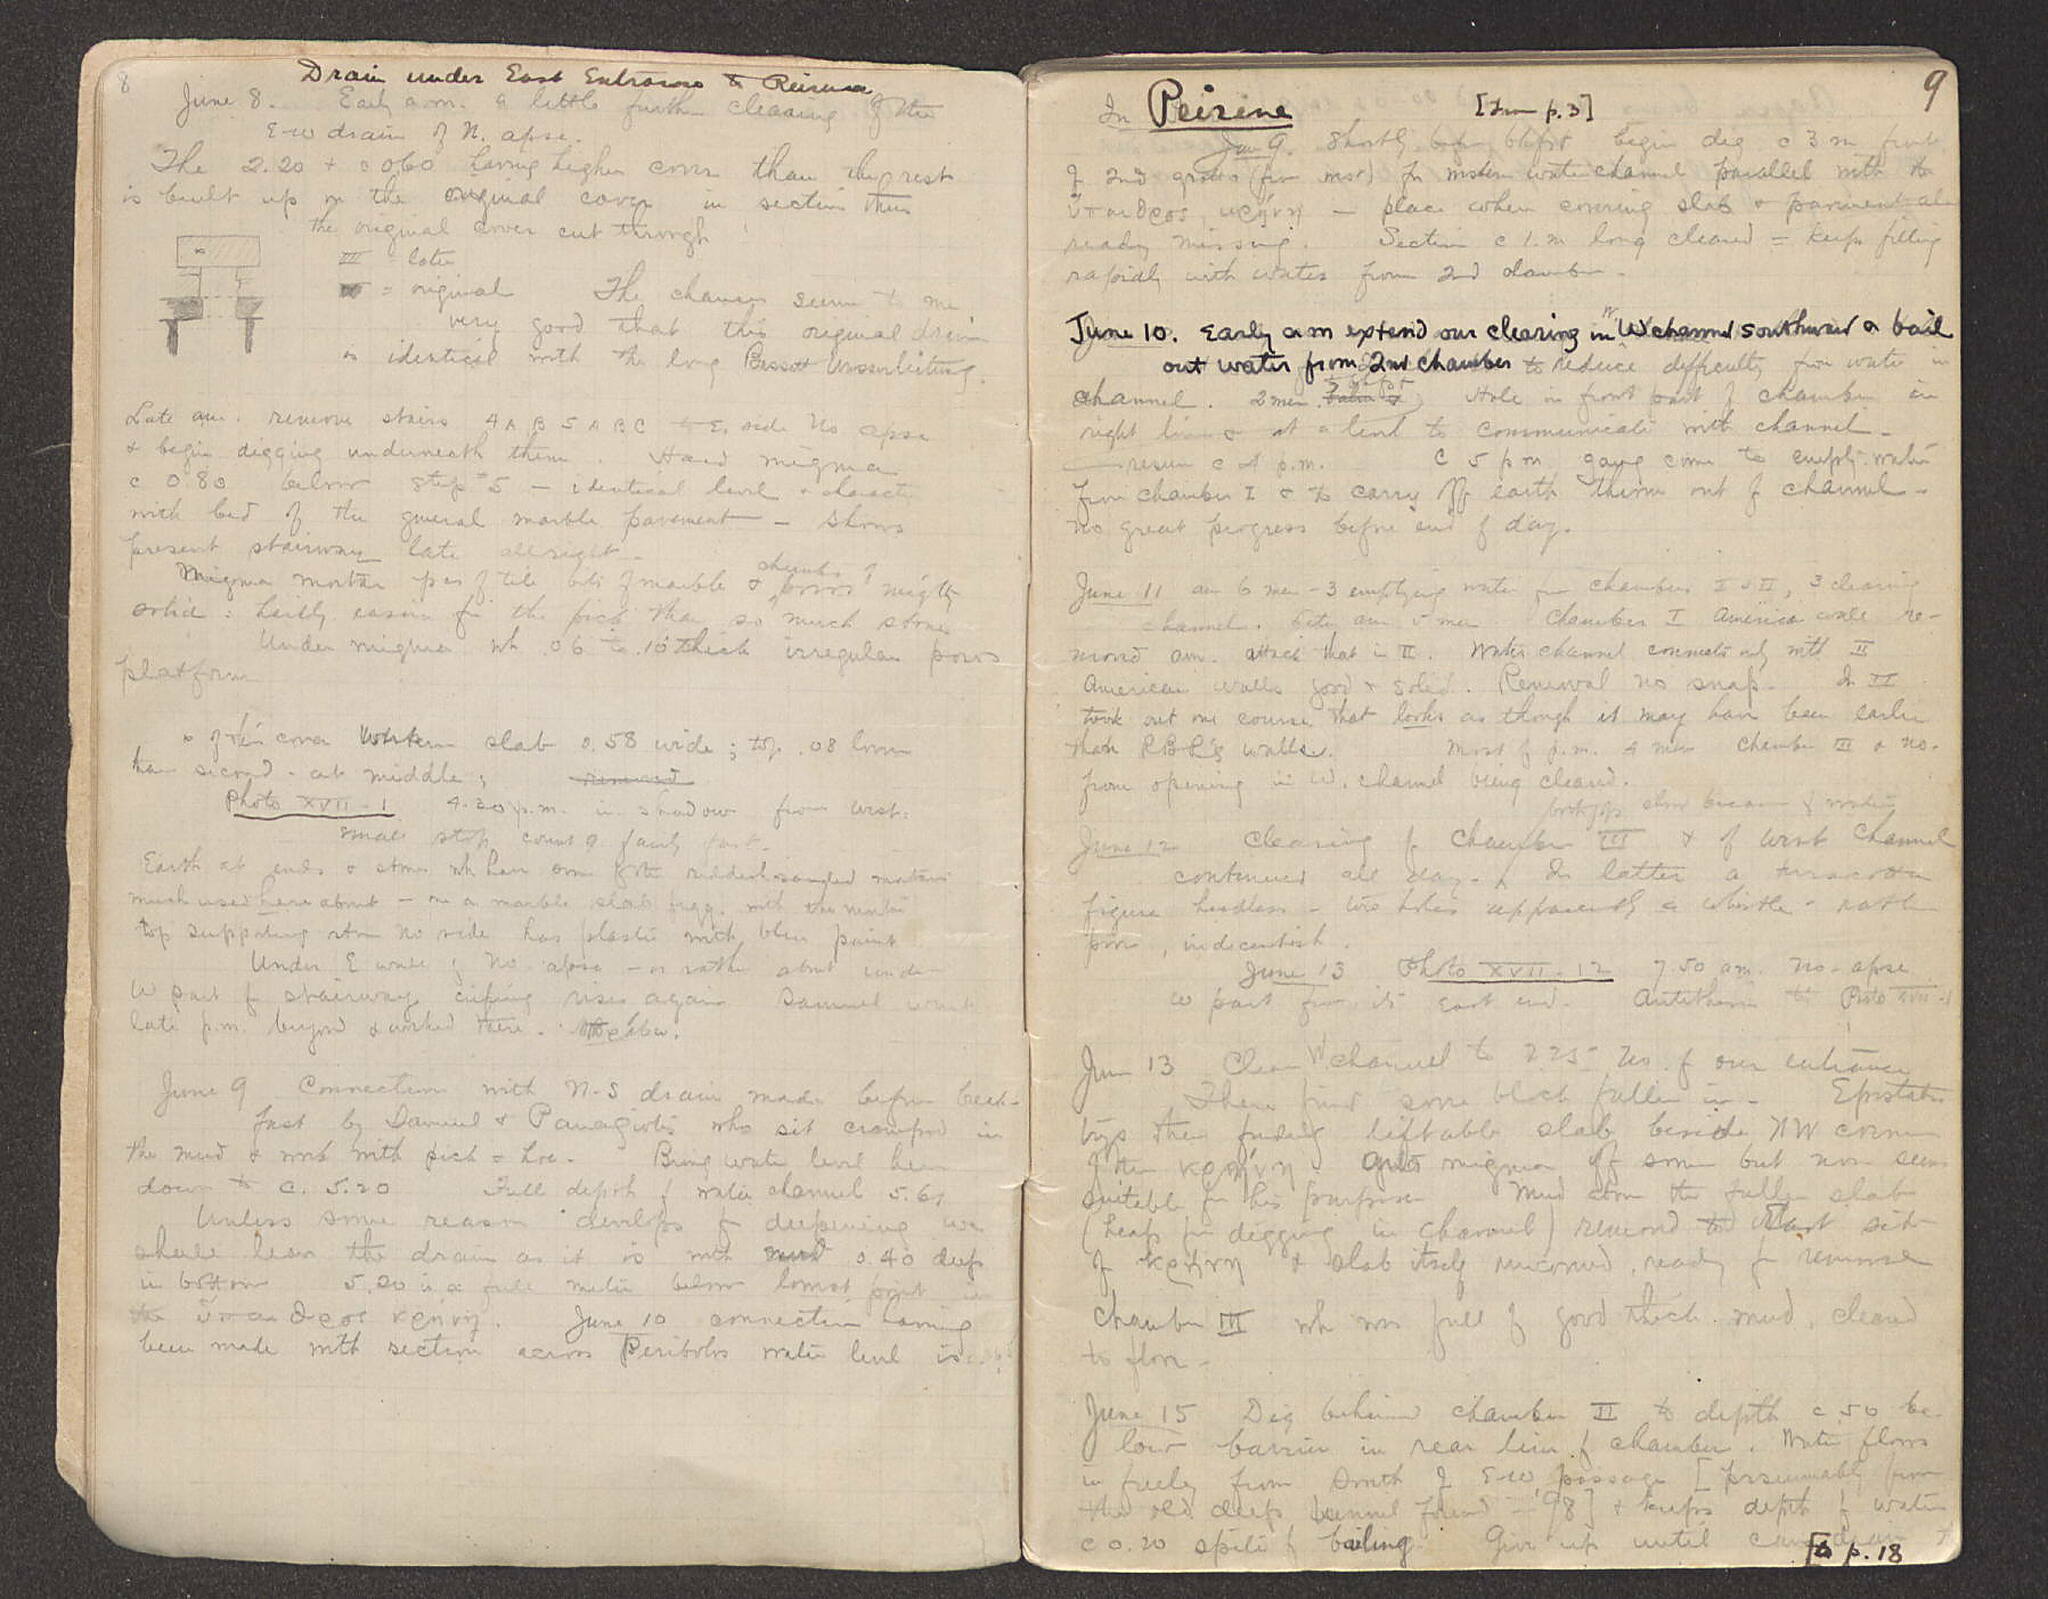 8
Drain under East Entrance to Peirene
June 8. Early a.m. a little further clearing of the
E-W drain of N. apse.
The 2.20 + 0.60 having higher cover than the rest
is built up on the original cover in section thus
the original cover cut through
III = later
= original The chances seem to me
very good that this original drain
is identical with the long Wasserleitung.
Late a.m. remove stairs 4 A B 5 A B C E. side No apse
& begin digging underneath them. Hard migma
c 0.80 below step #5 — identical level & character
with bed of the general marble pavement — shows
present stairway late allright.
Migma mortar pcs of tile bits of marble & chunks of poros mighty
solid : hardly easier for the pick than so much stone
Under migma wh .06 to .10 thick irregular poros
platform
* of this cover Western slab 0.58 wide ; top .08 lower
than second - at middle ;
Photo XVII - 1 4.20 p.m. in shadow from west.
small stop count 9 fairly fast.
Earth at ends & stones wh have some of the reddish mortar
much used hereabout — on a marble slab
top supporting stone No side has plaster with blue paint
Under E wall of No apse — or rather about under
W part of stairway rises again Samuel went
late p.m. beyond & worked there.
June 9 Connection with N-S drain made before break-
fast by Samuel & Panagiotis who sit cramped in
the mud & work with pick = hoe. Bring water level here
down to c. 5.20 Full depth of water channel 5.61
Unless some reason develops for deepening we
shall leave the drain as it is with mud 0.40 deep
in bottom 5.20 is a full meter below lowest point in
the ὕπαιθρος κρήνη. June 10 connection having
been made with section across Peribolos water level is
9
In Peirene [from p. 3]
June 9. Shortly before bkfst begin dig c 3 m front
of 2nd grotto (from west) for western water channel parallel with the
ὕπαιθρος κρήνη — place where covering slab & pavement al-
ready missing. Section c 1. m long cleared = keeps filling
rapidly with water from 2nd chamber.
June 10. Early a m extend our clearing in W channel southward & bail
out water from 2nd chamber to reduce difficulty from water in
channel. 2 men. Hole in front part of chamber in
right line & at a level to communicate with channel.
resume c 4 p.m. c 5 p m gang come to empty water
from chamber I & to carry off earth thrown out of channel.
no great progress before end of day.
June 11 am 6 men - 3 emptying water from chambers I & II, 3 clearing
channel. later am 5 men Chamber I American wall re-
moved am. attack that in II. Water channel connects only with II
American walls good & solid. Removal no snap. In II
took out one course that looks as though it may have been earlier
than RBR's walls. Most of p.m. 4 men chamber III & no.
from opening in W. channel being cleared.
both jobs slow because of water
June 12 Clearing of Chamber III & of West Channel
continued all day. In latter a terracotta
figure headless - two holes apparently a whistle - rather
poor, indecentish.
June 13 Photo XVII - 12 7 50 am. No. apse
W part from its East end. Antithesis to Photo XVII - 1
June 13 Clear W channel to 2.25 No. of our entrance
There find some block fallen in. Epistates
tries then finding liftable slab beside NW corner
of the κρήνη. Gets migma off some but none seems
suitable for his purpose Mud above the fallen slab
(heaps from digging in channel) removed to East side
of κρήνη & slab itself uncovered, ready for removal
Chamber III wh was full of good thick mud, cleared
to floor.
June 15 Dig behind chamber II to depth c .50 be-
low barrier in rear line of chamber. Water flows
in freely from South of E-W passage [presumably from
the old deep tunnel found - '98] & keeps depth of water
c 0.20 spite of bailing. Give up until
[to p. 18